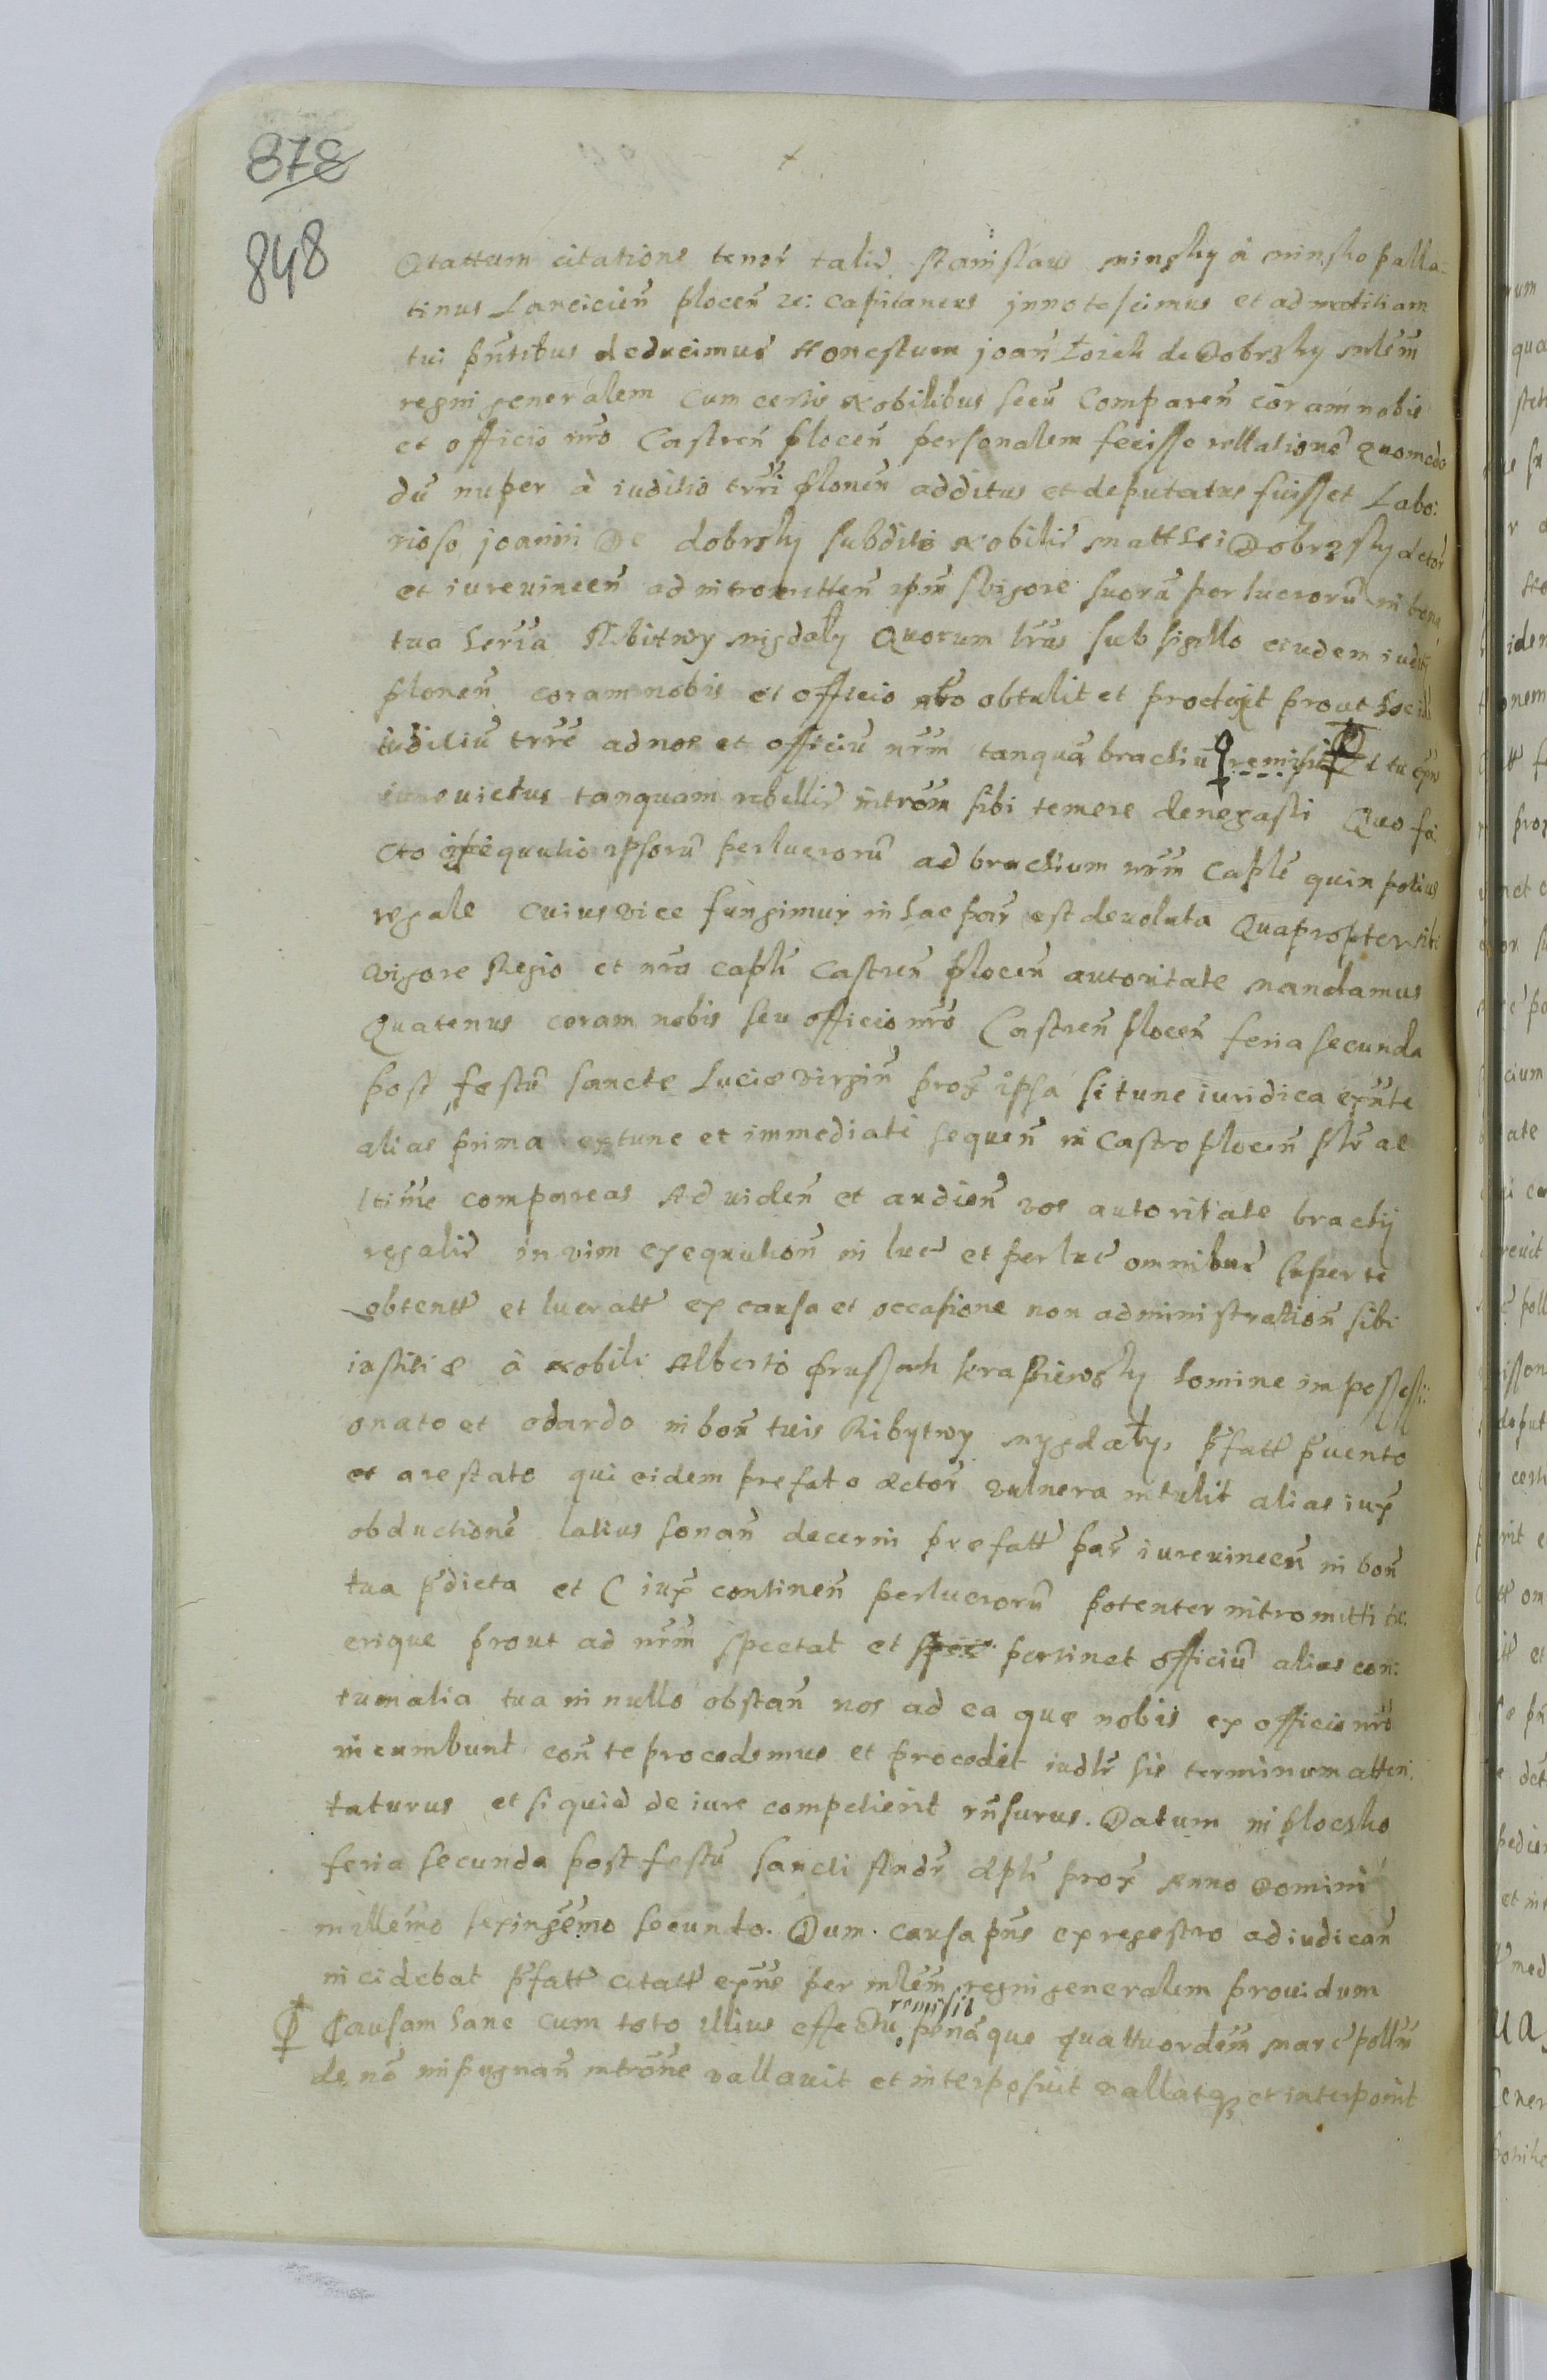 878
848
citattum citatione tenor talis Stanislaus minsky a minsko palla-
tinus Lancicien̄ plocen̄ zc: capitaneus jnnotescimus et ad notitiam
tui pn̄tibus deducimus Honestum joan̄ Łoich de Dobrzky mlēm
regni generalem cum certis Nobilibus secū Comparen̄ coram nobis
et officio nrō Castren̄ plocen̄ personalem fecisse rellationē quomodo
dū nuper à iuditio trrī plonen̄ additus et deputatus fuisset Labo:
rioso joanni De dobrsky subdito Nobilis matthei Dobrzsky actor
et iurevincen̄ ad intromitten̄ ipm̄ vigore suorū perlucrorū in bona
tua herīa Ribitwy migdały Quorum lrās sub sigillo eiudem iudity
plonen̄ coram nobis et officio nrō obtulit et produxit prout hoc id
iudiliū trrē ad nos et officiū nrm̄ tanquā brachiū remisit Et tu exn̄s
iure victus tanquam rebellis introm̄ sibi temere denegasti Quo fa
cto exequutio ipsorū perlucrorū ad brachium nrm̄ caplē quin potius
regale cuius vice fungimur in hac par̄ est devoluta Quapropter tibi
vigore Regio et nrā caplī Castren̄ plocen̄ autoritate mandamus
Quatenus coram nobis seu officio nrō Castren̄ plocen̄ feria secunda
post festū sancte Lucie virgin̄ prox ipsa si tunc iuridica exn̄te
alias prima extunc et immediati sequen̄ in Castro plocen̄ plr̄ ac
ltime compareas Ad viden̄ et audien̄ vos autoritate brachij
regalis in vim exequution̄ in luc et perluc omnibus super te
obtentt et lucratt ex causa et occasione non administration̄ sibi
iustitie à Nobili Alberto Prussak kraszewsky homine impossessi:
onato et odardo in bon̄ tuis Ribytwy mygdały, pfatt pvento
et arestato qui eidem prefato actor̄ vulnera intulit alias iux
obductionē latius sonan̄ decerni prefatt par̄ iurevincen̄ in bon̄
tua pdicta et C iux continen̄ perlucrorū potenter intromitti tu:
erique prout ad nrm̄ spectat et spec pertinet officiū alias con:
tumatia tua in nullo obstan̄ nos ad ea que nobis ex officio nrō
incumbunt con̄ te procedemus et procedet iudlr̄ sis terminum atten:
taturus et si quid de iure competierit rn̄surus. Datum in plocsko
feria secunda post festū sancti Andr̄ apli prox Anno Domini
millēmo sexingēmo secundo. Dum causa pn̄s ex regestro ad iudican̄
incidebat pfatt citatt exn̄s per mlēm regni generalem providum
Causam hanc cum toto illius effectu remisit penāque quattuordēm marc polln̄
de nō inpugnan̄ introm̄e vallavit et interposuit vallatqz et interponit